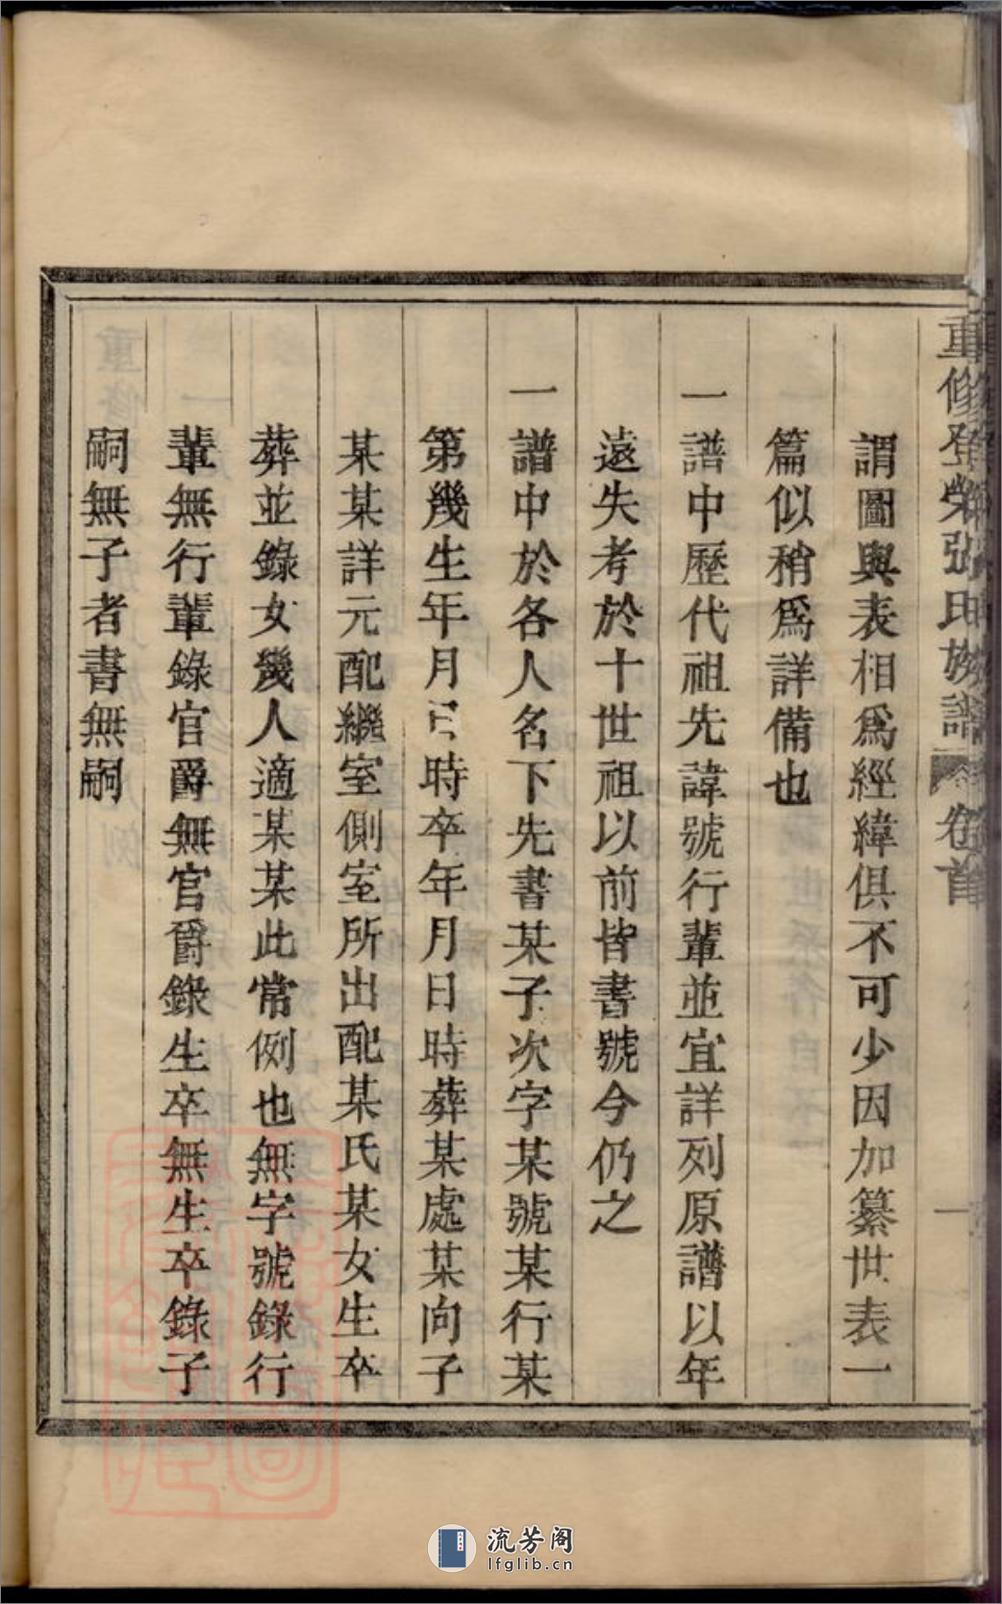 重修登榮張氏族譜 卷首 一
謂圖與表相爲經緯俱不可少因加纂世表一
篇似稍爲詳備也
一譜中歷代祖先諱號行輩並宜詳列原譜以年
遠失考於十世祖以前皆書號今仍之
一譜中於各人名下先書某子次字某號某行某
第幾生年月日時卒年月日時葬某處某向子
某某詳元配繼室側室所出配某氏某女生卒
葬並錄女幾人適某某此常例也無字號錄行
輩無行輩錄官爵無官爵錄生卒無生卒錄子
嗣無子者書無嗣
流芳阁
lfglib.cn